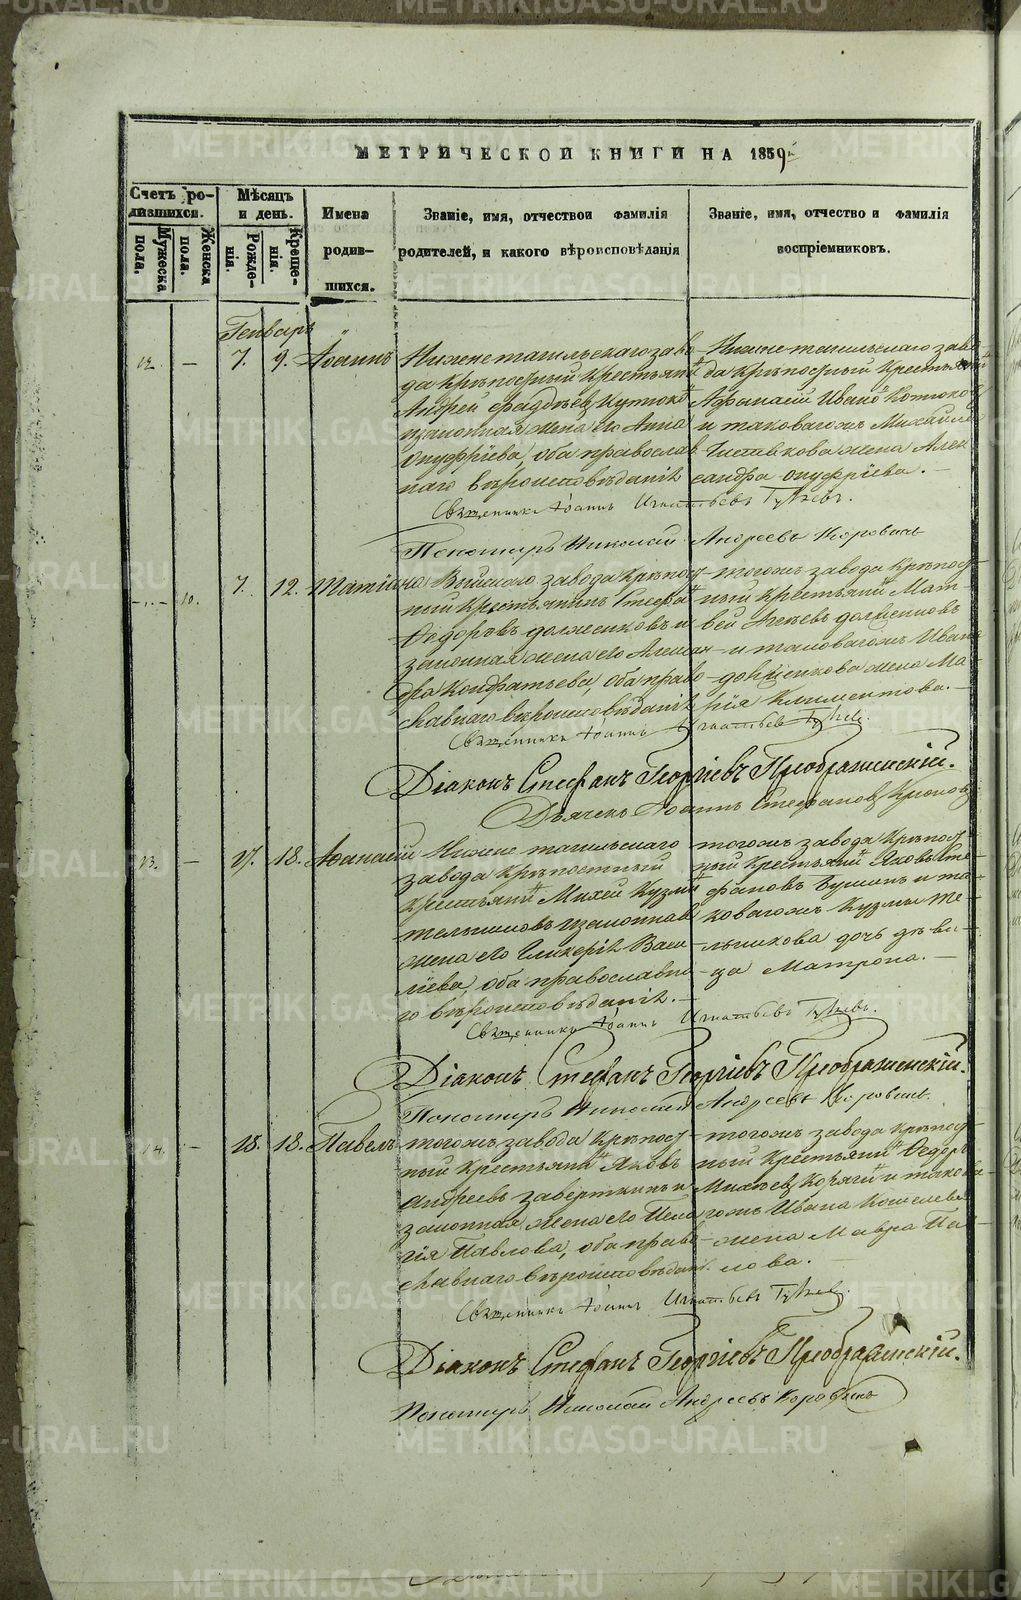 МЕТРИЧЕСКОЙ КНИГИ НА 1859й
Счетъ ро-
дившихся.
Мужеска пола.
Женска пола.
Мѣсяцъ
и день.
Рожде-
нія.
Креще-
нія.
Имена
родив-
шихся.
Званіе, имя, отчествои фамилія
родителей, и какого вѣроисповѣданія
Званіе, имя, отчество и фамилія
воспріемниковъ.
Генварь
12. — 7. 9. Іоаннъ
Нижнетагильскаго заво-
да крѣпостный крестьянинъ
Андрей Фадѣевъ
и законная жена его Анна
Онуфріева, оба православ-
наго вѣроисповѣданія
Нижне-тагильскаго заво-
да крѣпостный крестьянинъ
Афанасій Ивановъ
и таковагожъ Михаила
жена Алек-
сандра Онуфріева. —
Священникъ Іоаннъ Игнатьевъ
Пономарь Николай Андреевъ Коровинъ
— 10. 7. 12. Татіана
Выйскаго завода крѣпост-
ный крестьянинъ Стефанъ
Федоровъ и
законная жена его Алексан-
дра Кондратьева, оба право-
славнаго вѣроисповѣданія
тогожъ завода крѣпост-
ный крестьянинъ Мат-
вей
и таковагожъ Ивана
жена Ма-
рія Климентова. —
Священникъ Іоаннъ Игнатьевъ
Діаконъ Стефанъ Георгіевъ Преображенскій.
Дьячекъ Іоаннъ Стефановъ
13. — 17. 18. Афанасій
Нижне тагильскаго
завода крѣпостный
крестьянинъ Михей Кузминъ
и законная
жена его Гликерія Васи-
ліева, оба православна-
го вѣроисповѣданія. —
тогожъ завода крѣпост-
ный крестьянинъ Яковъ Сте-
фановъ и та-
ковагожъ Кузмы Те-
льникова дочь дѣви-
ца Матрона. —
Священникъ Іоаннъ Игнатьевъ
Діаконъ Стефанъ Георгіевъ Преображенскій.
Пономарь Николай Андреевъ Коровинъ.
14. — 18. 18. Павелъ
тогожъ завода крѣпост-
ный крестьянинъ Яковъ
Андреевъ Заверткинъ и
законная жена его Пела-
гія Павлова, оба право-
славнаго вѣроисповѣдан.
тогожъ завода крѣпост-
ный крестьянинъ Федоръ
и такова-
гожъ Ивана Кошелева
жена Мавра Пав-
лова. —
Священникъ Іоаннъ Игнатьевъ
Діаконъ Стефанъ Георгіевъ Преображенскій.
Пономарь Николай Андреевъ Коровинъ
METRIKI.GASO-URAL.RU